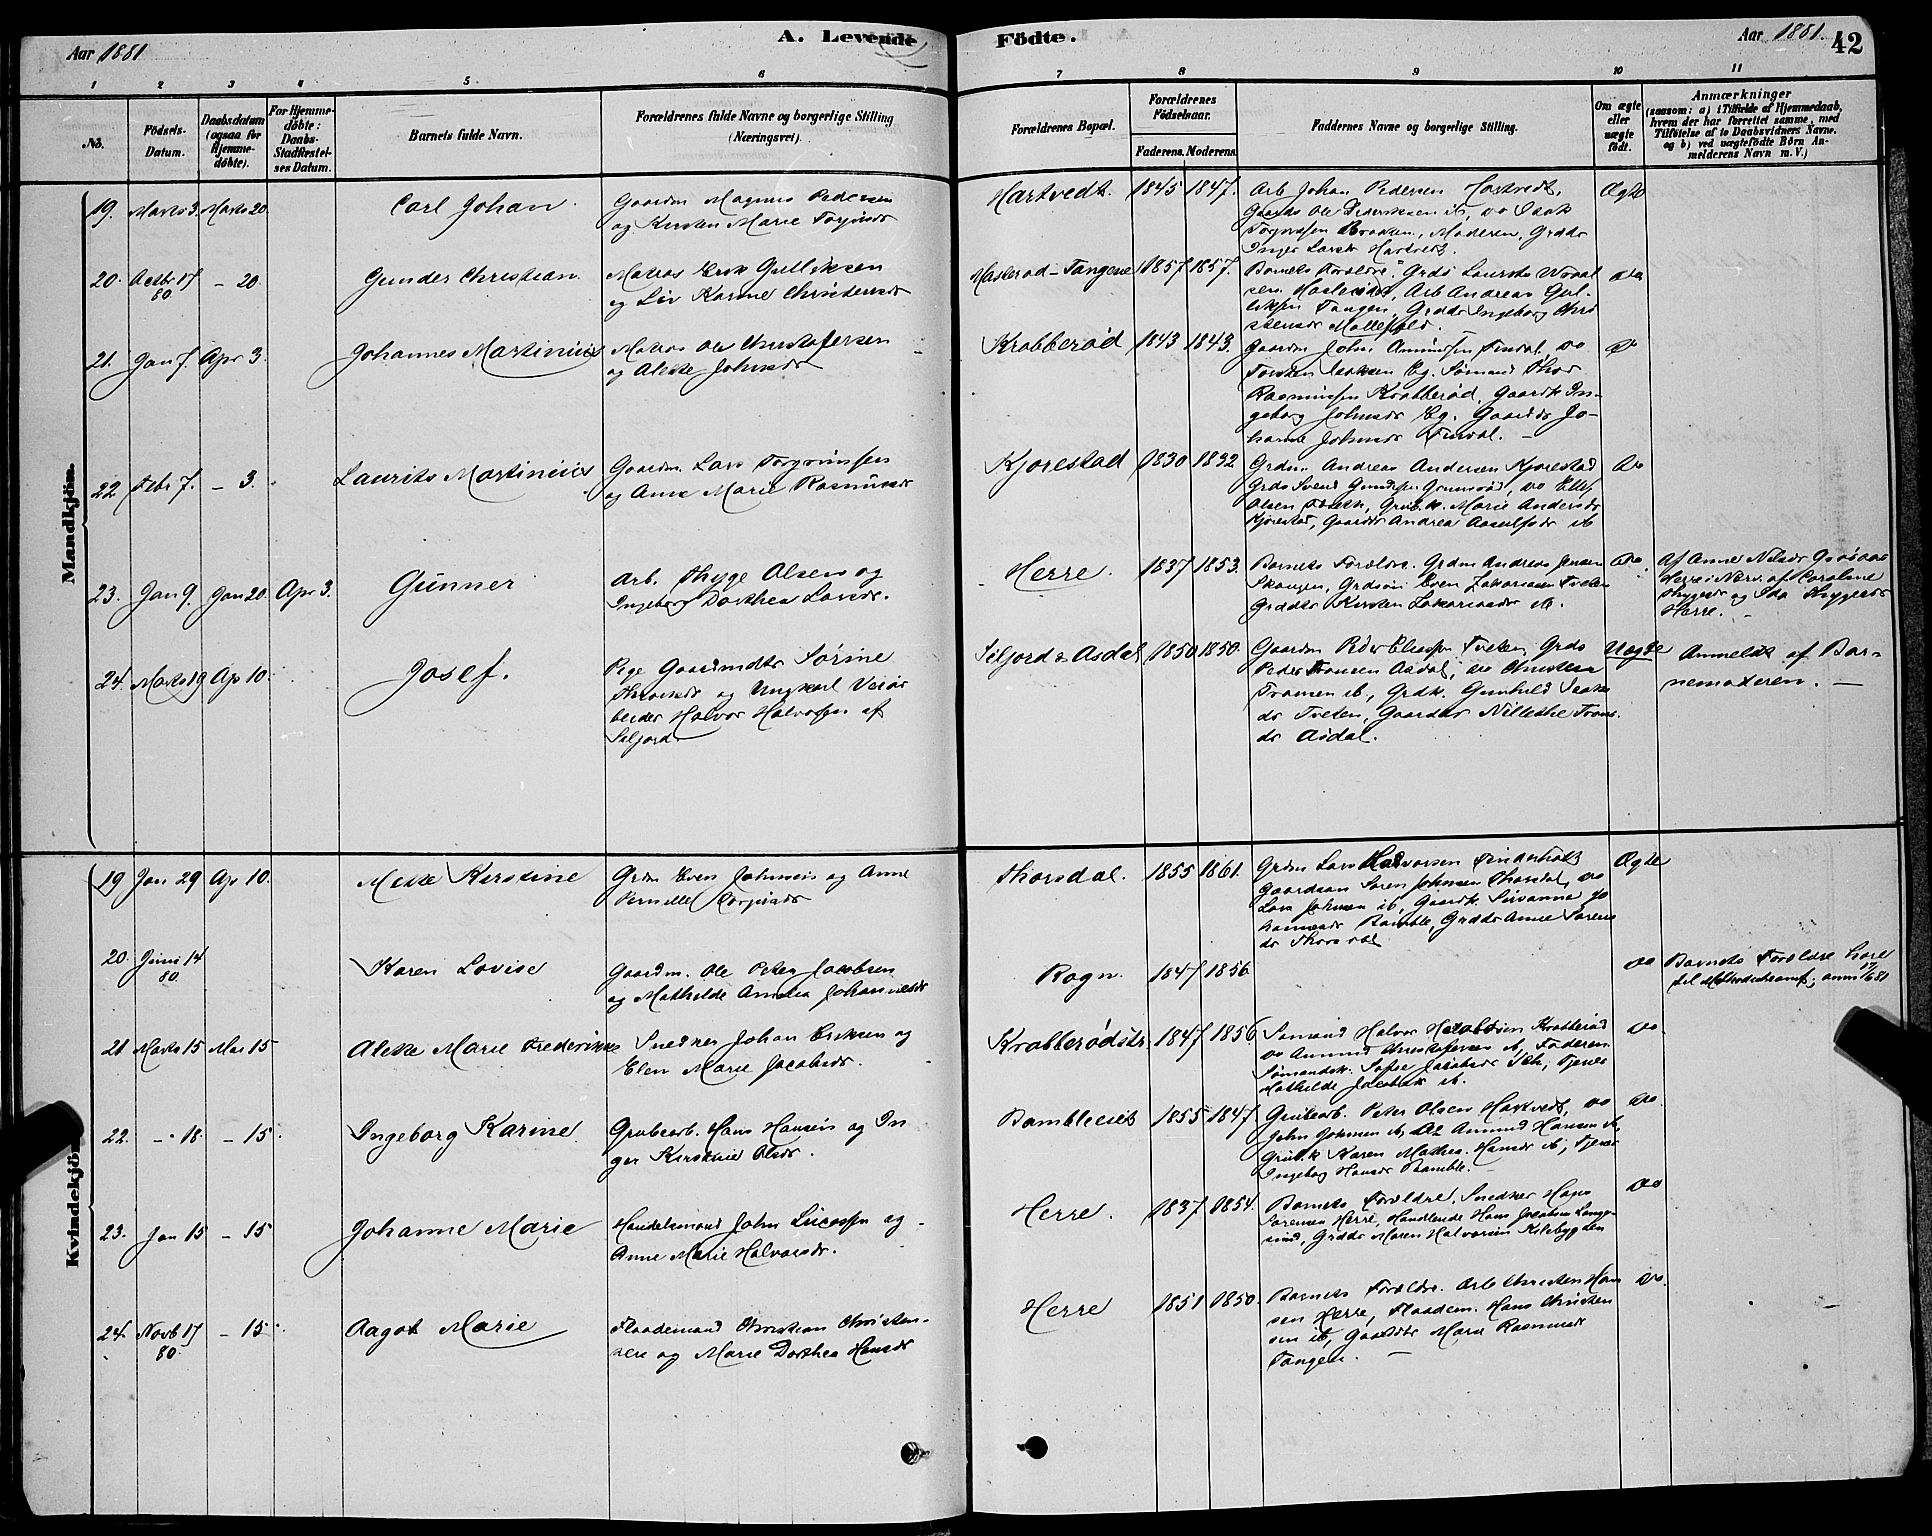 Aar 1881
A. Levende
Födte.
Aar 1881.
42
1 2 3 4 5 6 7 8 9 10 11
No.
Födsels-Datum.
Daabsdatum (ogsaa for Hjemmedöbte).
For Hjemmedöbte: Daabs-Stadfæstelses Datum.
Barnets fulde Navn.
Forældrenes fulde Navne og borgerlige Stilling (Næringsvei).
Forældrenes Bopæl.
Forældrenes Födselsaar.
Faderens. Moderens.
Faddernes Navne og borgerlige Stilling.
Om ægte eller uægte födt.
Anmærkninger
(saasom: a) i Tilfælde af Hjemmedaab, hvem der har forrettet samme, med Tilföielse af to Daabsvidners Navne. og b) ved uægtefödte Börn Anmelderens Navn m. V.)
Mandkjön.
19. Marts 3. Marts 20. Carl Johan.
Gaardm Magnus Pedersen
og Kirsten Marie Torgrimsdr
Hartvedt. 1845 1847.
Arb Johan Pedersen Hartvedt,
Ægte
20. Octbr 17 80 - 20 Gunder Christian.
Matros Erik Gulliksen
og Liv Karine Christensdr
Tangene 1857 1857.
Barnets Forældre.
Tangen, Grddr Ingeborg
do
21. Jan 7. Apr 3. Johannes Martinius
Matros Ole Christofersen
og Aleke Johnsdr
Krabberød 1843 1843.
Gaardm John Amundsen Findal, do
Torsten Isaksen Eg. Sømand Thor
Rasmussen Krabberød, Gaardk In-
geborg Johnsdr Eg. Gaarddr Jo-
hanne Johnsdr Findal. -
do
22 Febr 7. - 3. Laurits Martinius
Gaardm. Lars Torgrimsen
og Anne Marie Rasmusdr
Kjørestad 1830 1832
Grdm. Andreas Andersen Kjørestad
Olsen Tveten, Grubk. Marie Andersdr
Kjørestad, Gaarddr Andrea
do
23. Jan 9. Jan 20. Apr 3. Gunner
Arb. Thyge Olsen og
Ingeborg Dorthea Larsdr.
Herre. 1837 1853.
Barnets Forældre. Grdm Andreas Jensen
Skougen, Grdsøn Even Zakariasen Tveten
Grddtr Kirsten Zakariasdr ib.
do.
Af Anne Nilsdr
Herre i Nærv. af Caroline
Thygesdr og Ida Thygesdr
Herre. -
24. Marts 19 Ap 10. Josef.
Pige Gaardmdtr Sørine
og Ungkarl Veiar
beider Halvor Halvorsen af
Seljord.
Seljord & Asdal 1850 1850.
Gaardm Peder Eliassen Tveten, Grds
Peder Fransen Asdal, do Christian
Fransen ib, Grdk. Gunhild Isaks
dr Tveten, Gaarddtr Nilleke Frans
dr Asdal.
Uægte
Anmeldt af Bar-
nemoderen. -
Kvindekjön.
19 Jan 29 Ap 10. Mette Kirstine
Grdm Even Johnsen og Anne
Pernille
Thorsdal. 1855 1861.
Grdm Lars Halvorsen Finderholt
Gaardsøn Søren Johnsen Thorsdal, do
Lars Johnsen ib, Gaardk. Susanne Jo
hannesdr Bamble, Grddr Anne Sørens
dr Thorsdal
Ægte
20. Juni 14 80. Karen Lovise
Gaardm. Ole Peter Jacobsen
og Mathilde Amalia
Rogn. 1847 1856
do
Barnets Forældre høre
til Methodistsamf;
21 Marts 15 Mai 15 Aleke Marie Frederikke
Snedker Johan Eriksen og
Elen Marie Jacobsdr.
Krabberødstr. 1847 1856
Sømand Halvor Krabberød
do Amund Christofersen ib, Faderen
Sømandsk. Sofie Jacobsdr Tjenes
Mathilde Jacobsdr ib.
do.
22. -" 18. - 15. Ingeborg Karine.
Grubearb. Hans Hansen og In
ger Kirstine Olsdr.
Bambleeiet 1855 1847
Grubearb. Peter Olsen Hartvedt, do
John Johnsen ib, Amund Hansen ib,
Grubk Karen Mathea Hansdr ib, Tjenes
Ingeborg Hansdr Bamble.
do.
23. Jan 15 - 15. Johanne Marie
Handelsmand John Lucassen og
Anne Marie Halvorsdr.
Herre. 1837 1854.
Barnets Forældre. Snedker Hans
Sørensen Herre, Handlende Hans Jacobsen Lange-
sund, Grddr Maren Halvorsen Kilebygden
do
24. Novb 17 80. - 15. Aagot Marie
Flaademand Christian Christen-
sen og Marie Dorthea Hansdr
Herre 1851 1850.
Barnets Forældre. Arb Christen Han
sen Herre, Flaadem. Hans Christen
sen ib, Gaarddtr Marie Rasmusdr
Tangen. -
do.